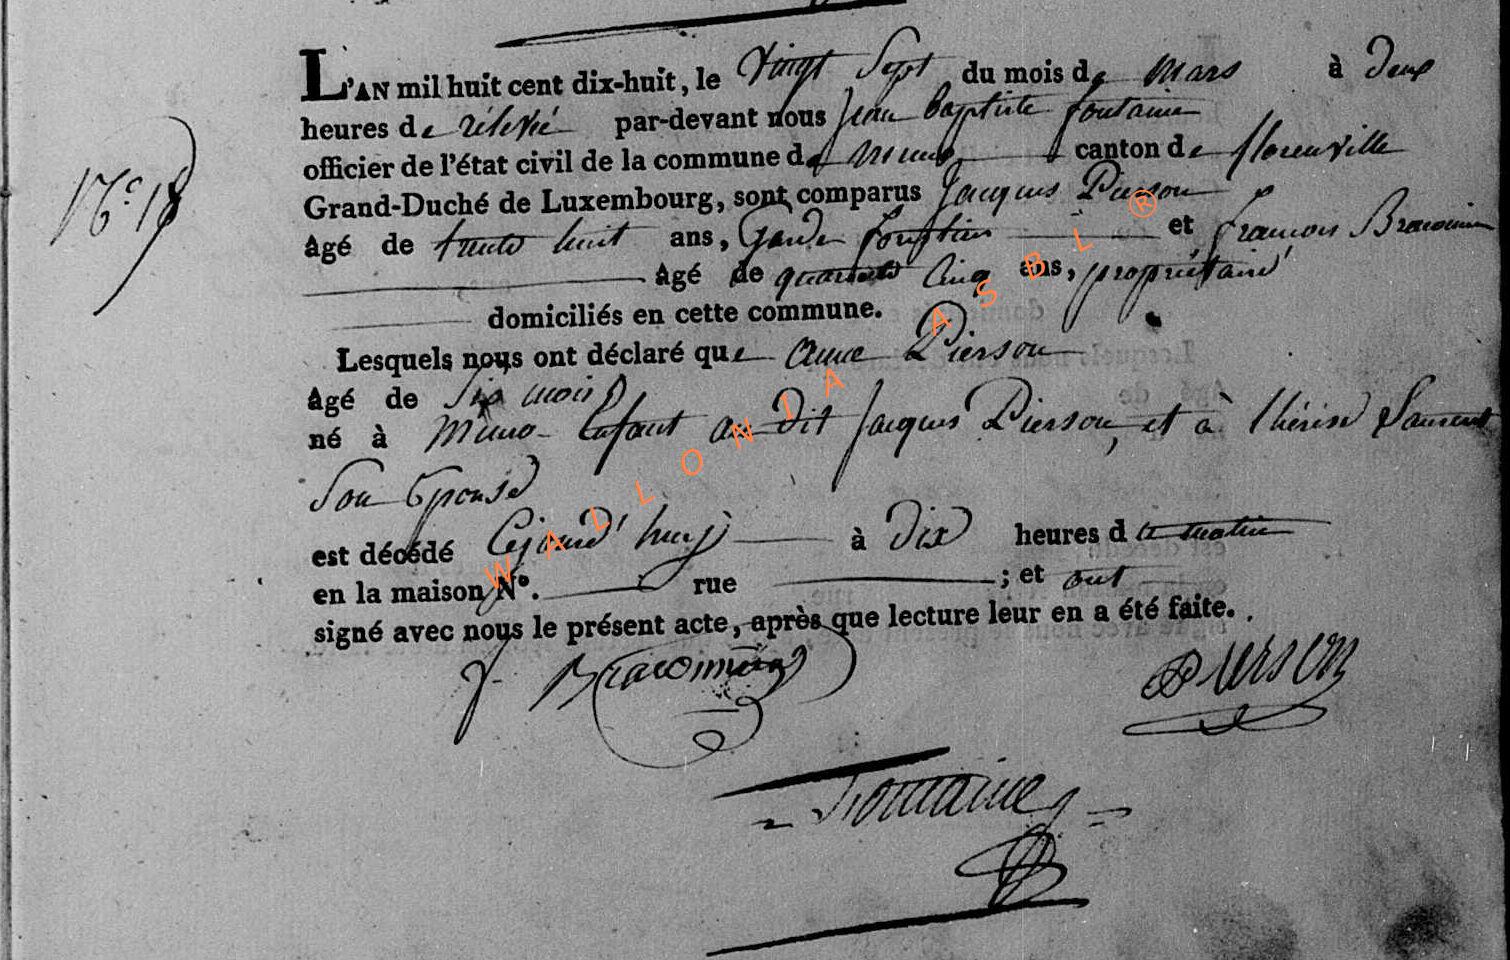 L'AN mil huit cent dix-huit, le Vingt Sept du mois de mars à deux
heures de rélevée par-devant nous Jean baptiste fontaine
N.° 18
officier de l'état civil de la commune de muno canton de florenville
Grand-Duché de Luxembourg, sont comparus Jacques Pierson
âgé de trente huit ans, Garde forestier et françois Braconnier
âgé de quarante Cinq ans, propriétaire
domiciliés en cette commune.
Lesquels nous ont déclaré que anne Pierson
âgé de Six mois
né à Muno Enfant au dit Jacques Pierson, et à thérèse Laurent
Son Epouse
est décédé Cejourd'huy à Dix heures du matin
en la maison N°. rue ; et ont
signé avec nous le présent acte, après que lecture leur en a été faite.
f. Braconnier Pierson
Fontaine
WALLONIA ASBL ®